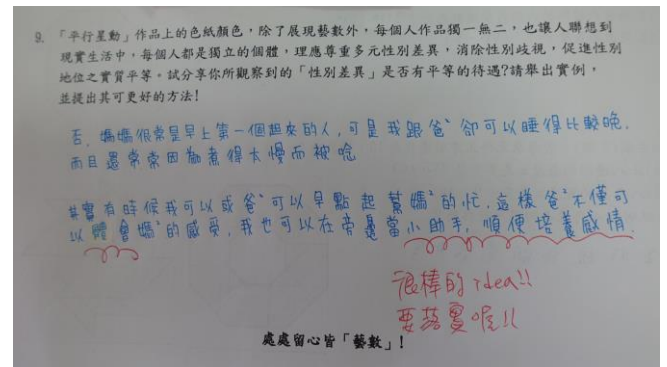 9. 「平行星動」作品上的色紙顏色，除了展現藝數外，每個人作品獨一無二，也讓人聯想到
現實生活中，每個人都是獨立的個體，理應尊重多元性別差異，消除性別歧視，促進性別
地位之實質平等。試分享你所觀察到的「性別差異」是否有平等的待遇?請舉出實例，
並提出其可更好的方法!
否，媽媽很常是早上第一個起來的人，可是我跟爸ˋ卻可以睡得比較晚，
而且還常常因為煮得太慢而被唸
其實有時候我可以或爸ˋ可以早點起幫媽ˇ的忙，這樣爸ˇ不僅可
以體會媽ˇ的感受，我也可以在旁邊當小助手，順便培養感情.
很棒的idea!!
要落實喔!!
處處留心皆「藝數」!